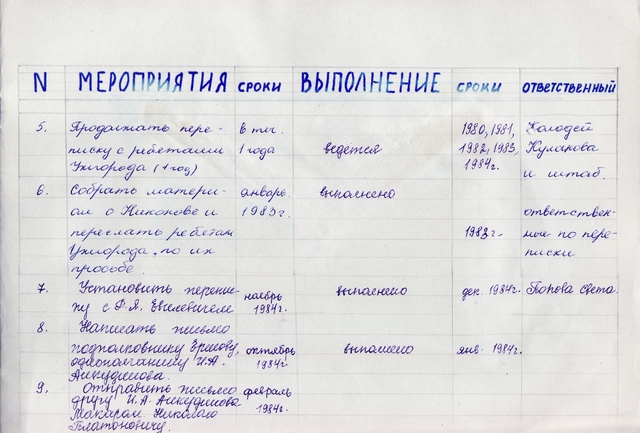 N МЕРОПРИЯТИЯ СРОКИ ВЫПОЛНЕНИЕ СРОКИ ОТВЕТСТВЕННЫЙ
5. Продолжать пере- в теч. 1980, 1981, Колодей
писку с ребятами 1 года ведется 1982, 1983, Кулакова
Ужгорода (1 год) 1984г. и штаб.
6. Собрать матери- январь выполнено
ал о Никонове и 1983г. ответствен-
переслать ребятам 1983г. ные по пере-
Ужгорода, по их писки
просьбе.
7. Установить перепис- ноябрь выполнено дек. 1984г. Попова Света.
ку с 1984г.
8. Написать письмо
подполковнику Ершову, октябрь выполнено янв. 1984г.
однополчанину И.А. 1984г.
Анкудинова.
9. Отправить письмо февраль
другу И.А. Анкудинова 1984г.
Макарам. Николаю
Платоновичу.